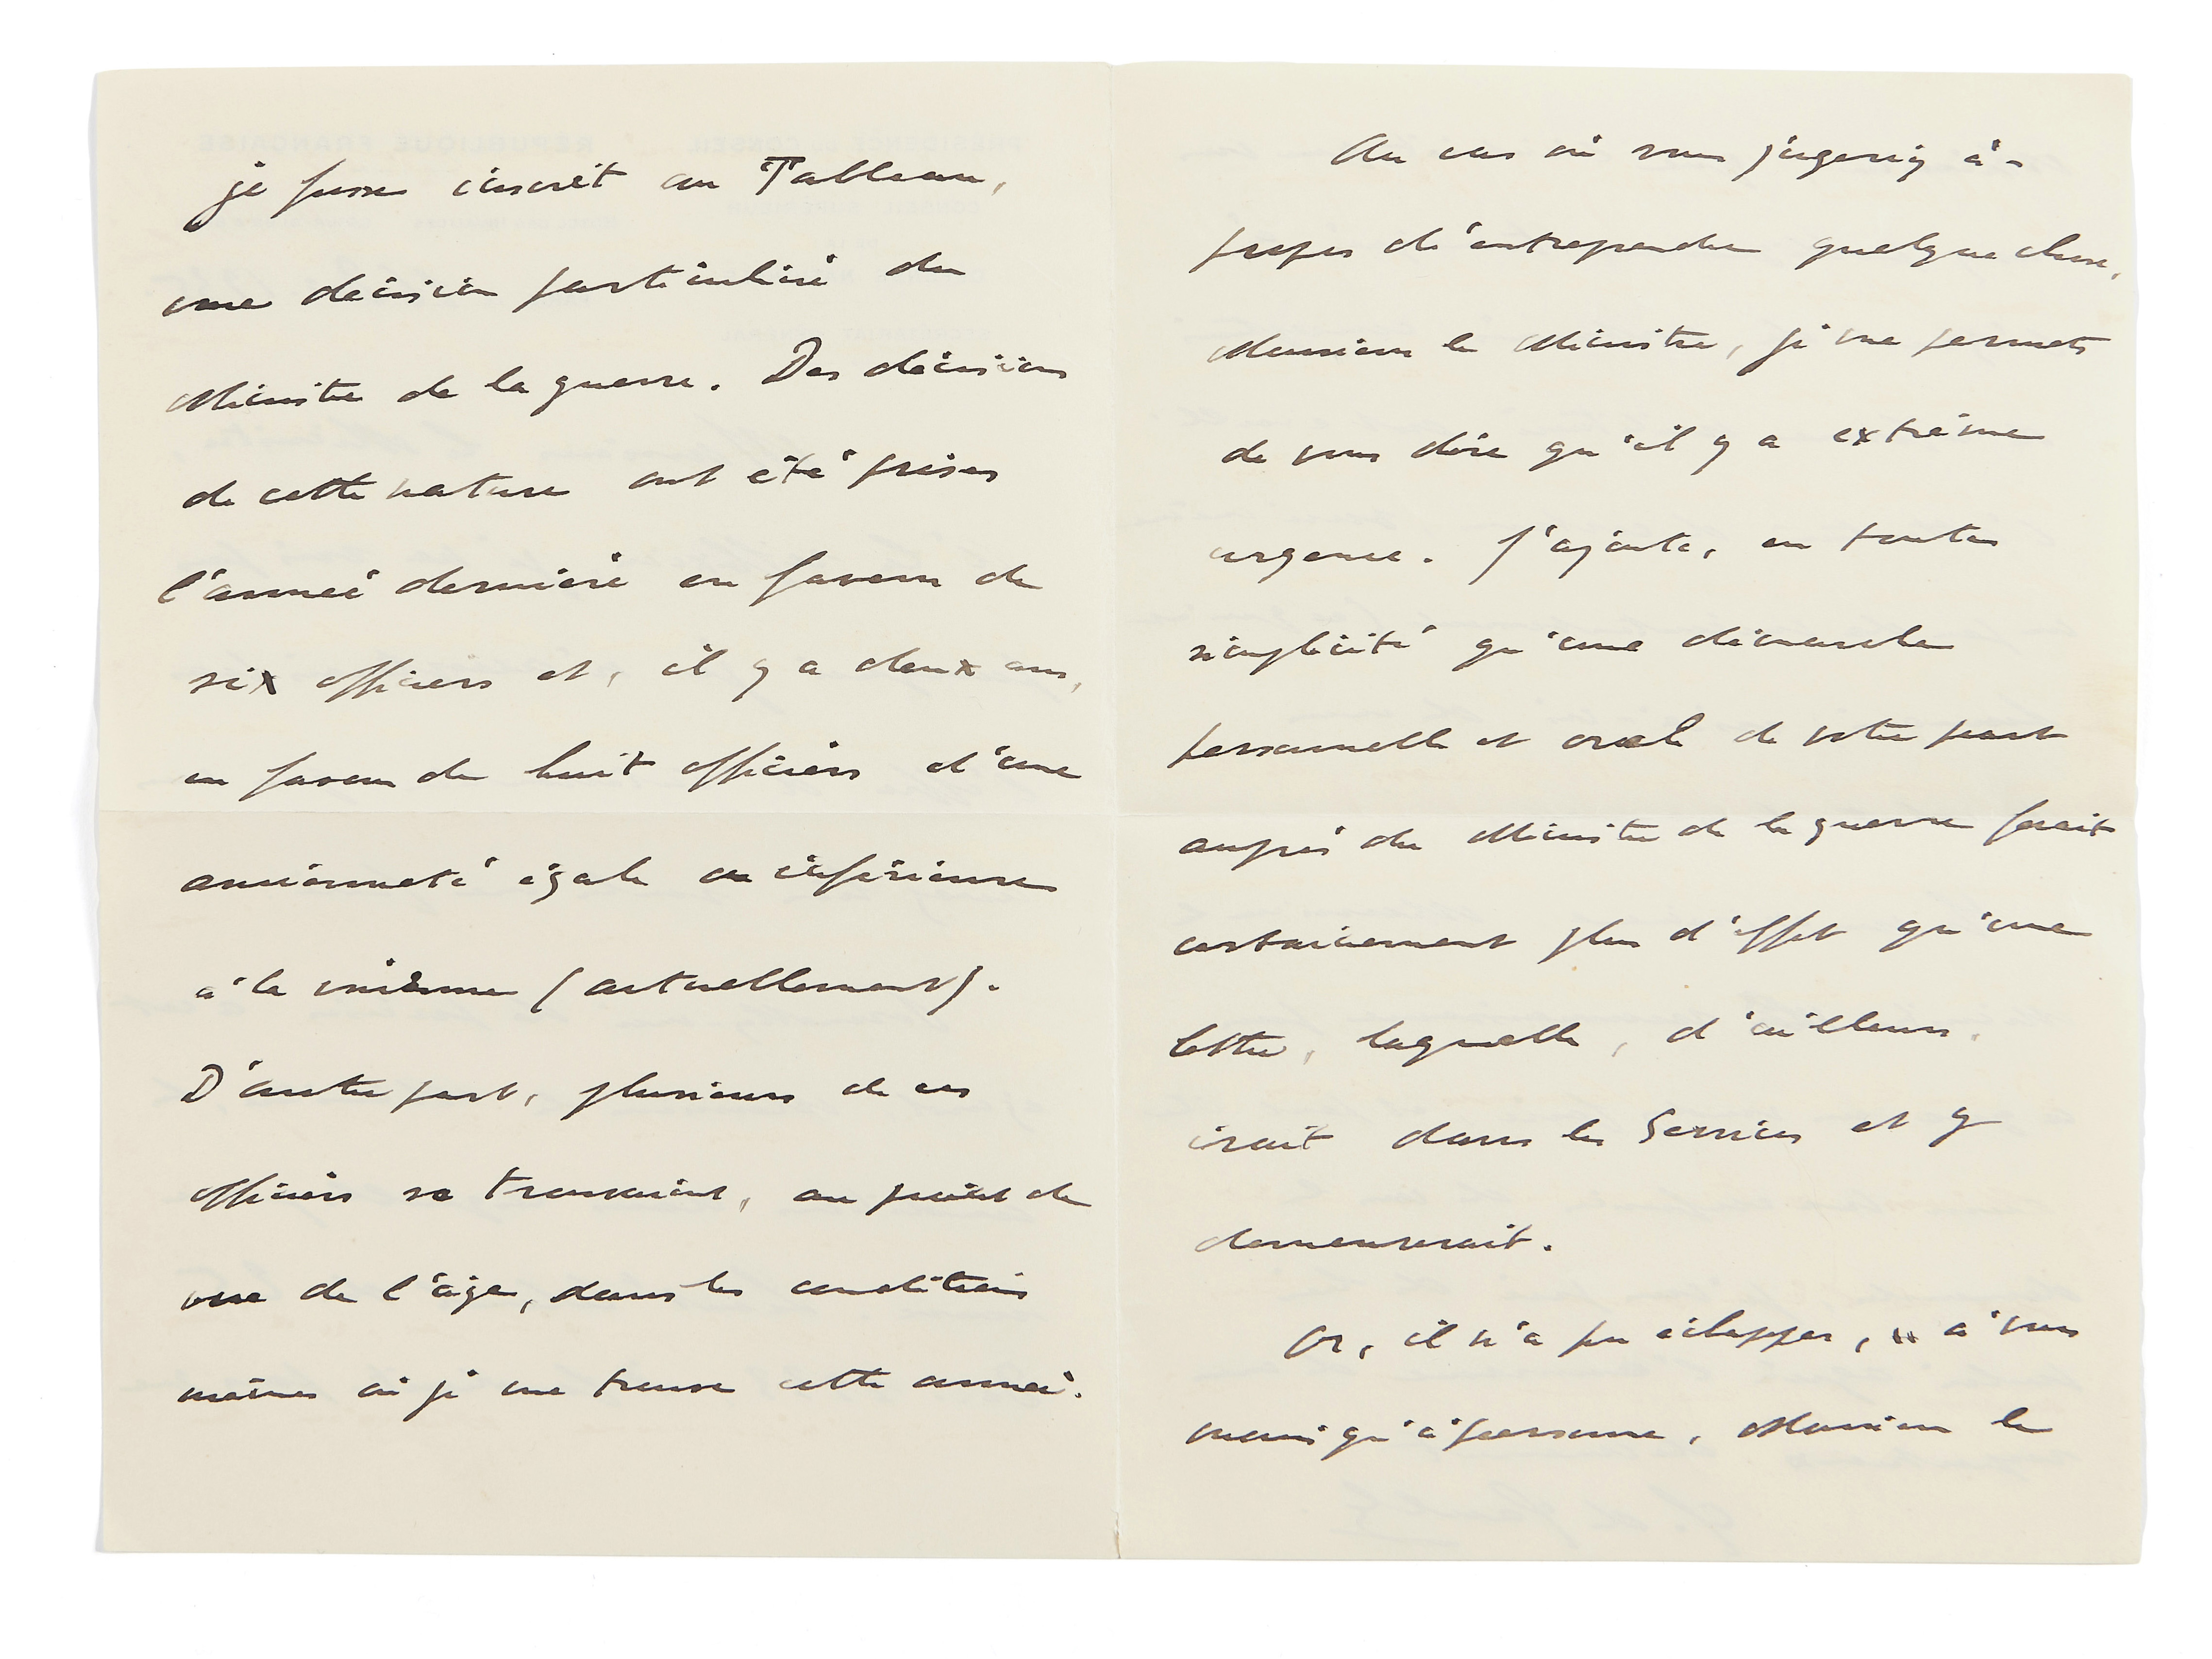 je fusse inscrit au Tableau,
une décision particulière du
Ministre de la guerre. Des décisions
de cette nature ont été prises
l'année dernière en faveur de
six officiers et, il y a deux ans,
en faveur de huit officiers d'une
ancienneté égale ou inférieure
à la mienne (actuellement).
D'autre part, plusieurs de ces
officiers se trouvaient, au point de
vue de l'âge, dans les conditions
mêmes où je me trouve cette année.
Au cas où vous jugeriez à-
propos d'entreprendre quelque chose,
Monsieur le Ministre, je me permets
de vous dire qu'il y a extrême
urgence. J'ajoute, en toute
simplicité qu'une démarche
personnelle et orale de votre part
auprès du Ministre de la guerre ferait
certainement plus d'effet qu'une
lettre, laquelle, d'ailleurs,
irait dans les Services et y
demeurerait.
Or, il n'a pu échapper, à vous
moins qu'à personne, Monsieur le
RÉPUBLIQUE FRANÇAISE
PRÉSIDENCE DU CONSEIL